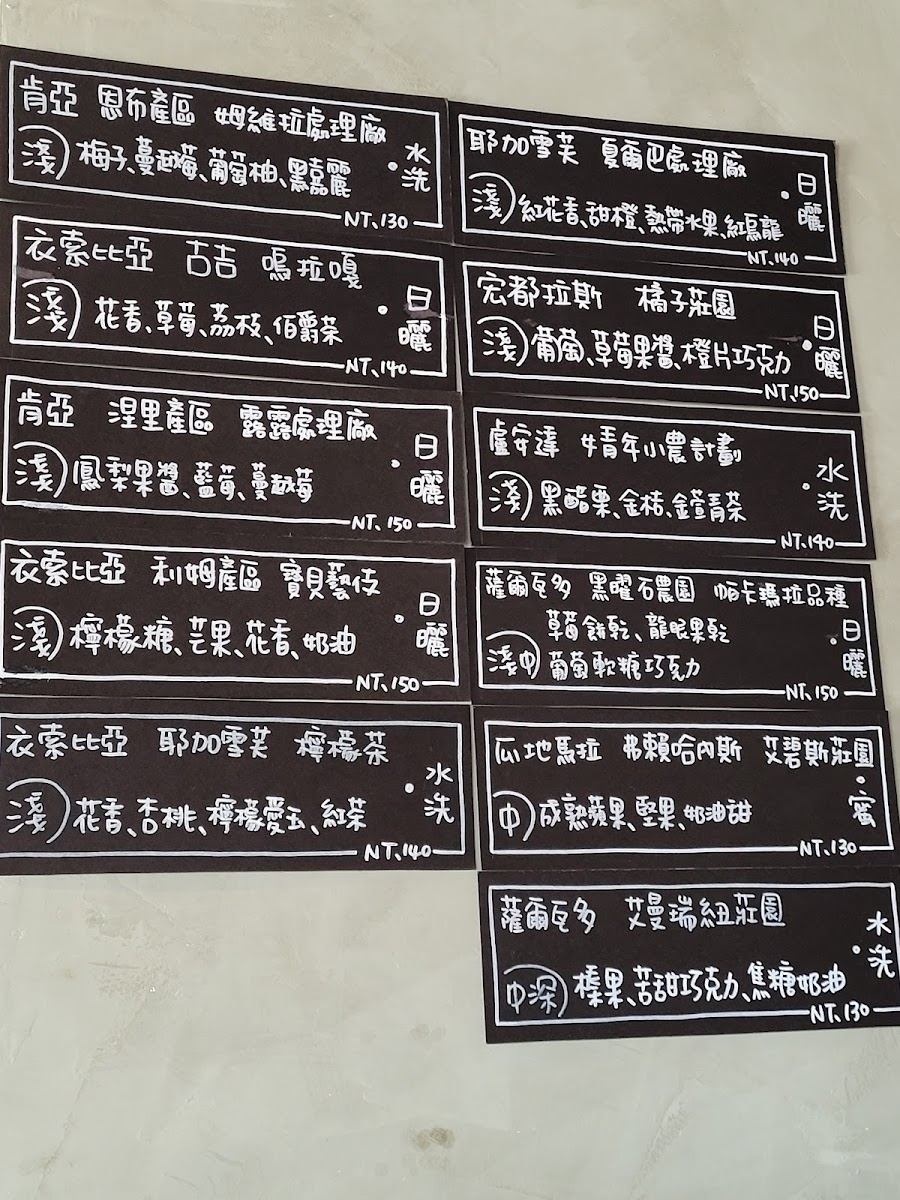 肯亞 恩布產區 姆維拉處理廠
淺 梅子、蔓越莓、葡萄柚、黑嘉麗
水洗
NT.130
衣索比亞 古吉 嗚拉嘎
淺 花香、草莓、荔枝、伯爵茶
日曬
NT.140
肯亞 涅里產區 露露處理廠
淺 鳳梨果醬、藍莓、蔓越莓
日曬
NT.150
衣索比亞 利姆產區 寶貝藝伎
淺 檸檬糖、芒果、花香、奶油
日曬
NT.150
衣索比亞 耶加雪芙 檸檬茶
淺 花香、杏桃、檸檬愛玉、紅茶
水洗
NT.140
耶加雪芙 夏爾巴處理廠
淺 紅花香、甜橙、熱帶水果、紅烏龍
日曬
NT.140
宏都拉斯 橘子莊園
淺 葡萄、草莓果醬、橙片巧克力
日曬
NT.150
盧安達 青年小農計劃
淺 黑醋栗、金桔、金萱青茶
水洗
NT.140
薩爾瓦多 黑曜石農園 帕卡瑪拉品種
草莓餅乾、龍眼果乾
淺中 葡萄軟糖巧克力
日曬
NT.150
瓜地馬拉 弗賴哈內斯 艾碧斯莊園
中 成熟蘋果、堅果、奶油甜
蜜
NT.130
薩爾瓦多 艾曼瑞紐莊園
中深 榛果、苦甜巧克力、焦糖奶油
水洗
NT.130